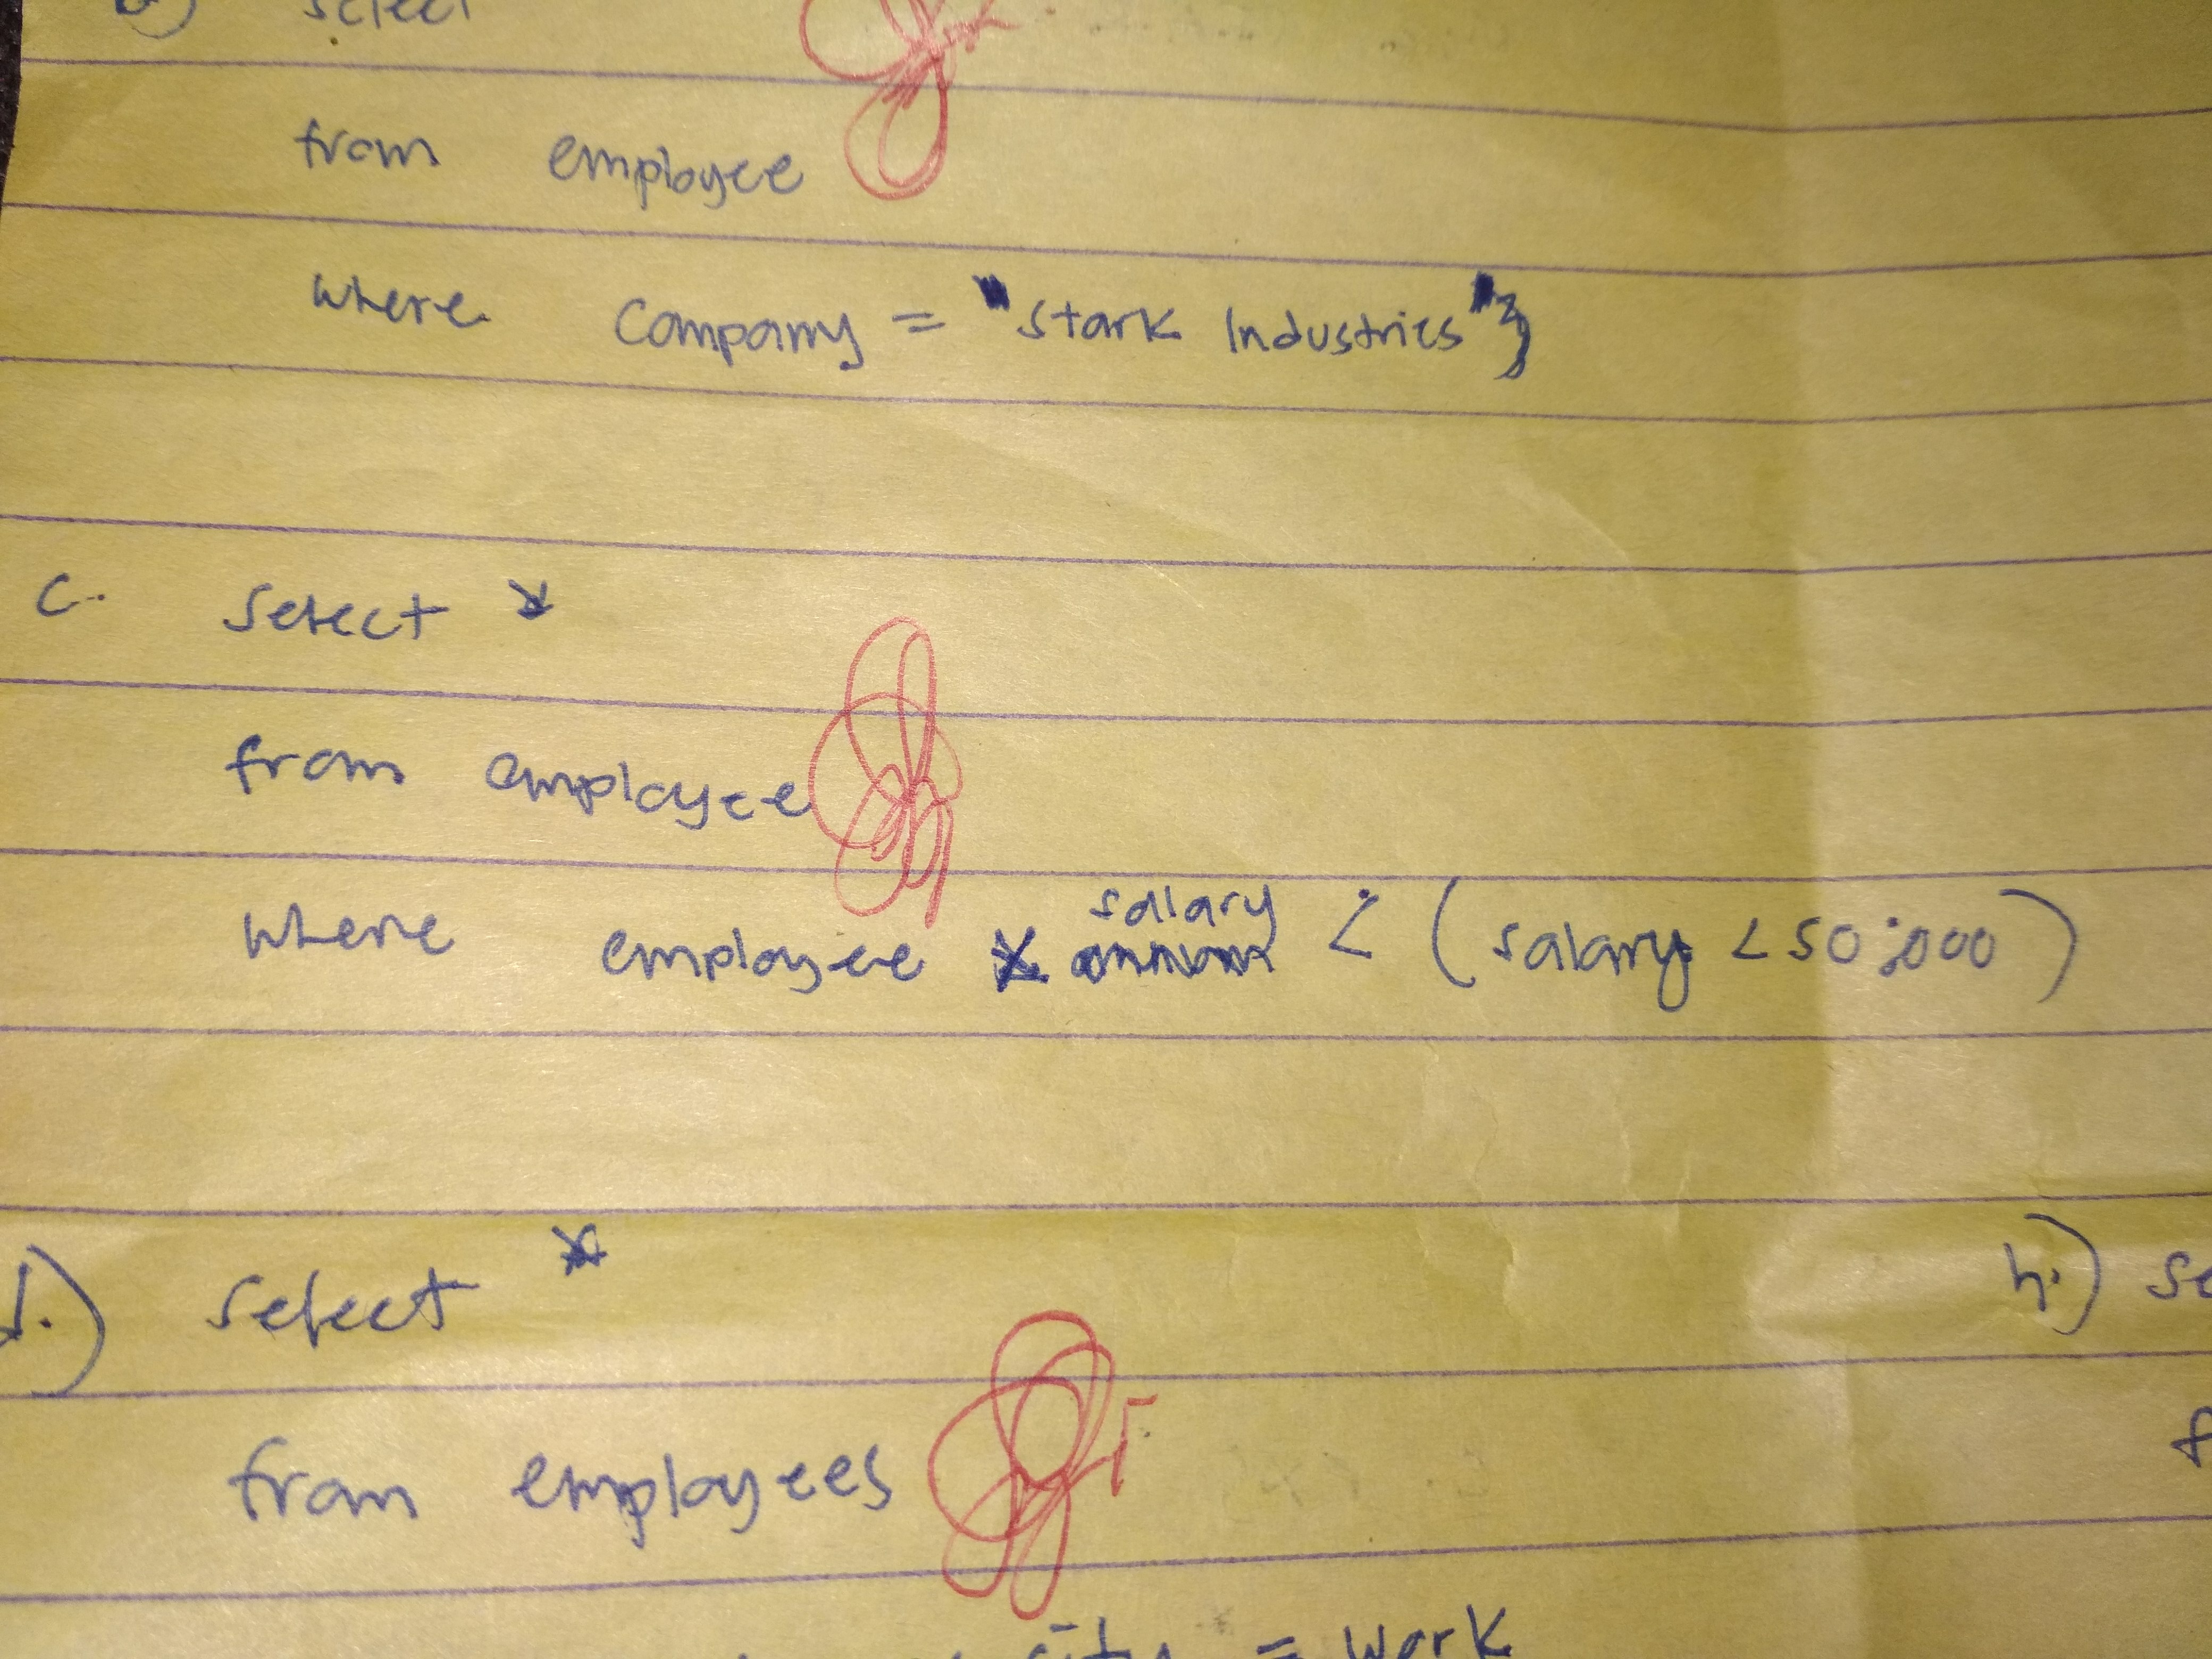 select
from employee
where Company = "Stark Industries"}
c. Select *
from employee
where employee salary < (salary < 50;000)
d.) Select *
h.) se
from employees
f
city = work